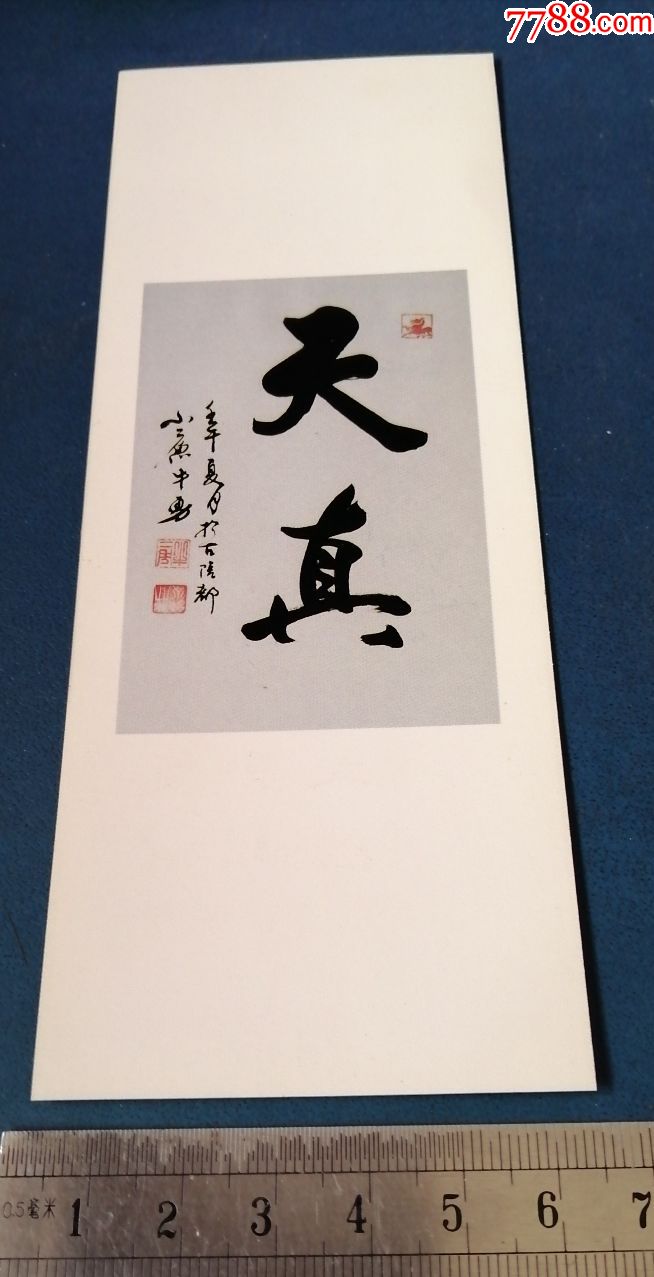 7788.com
天真
壬午夏月于古陪都
小∴鱼牛勇
0.5毫米
1 2 3 4 5 6 7